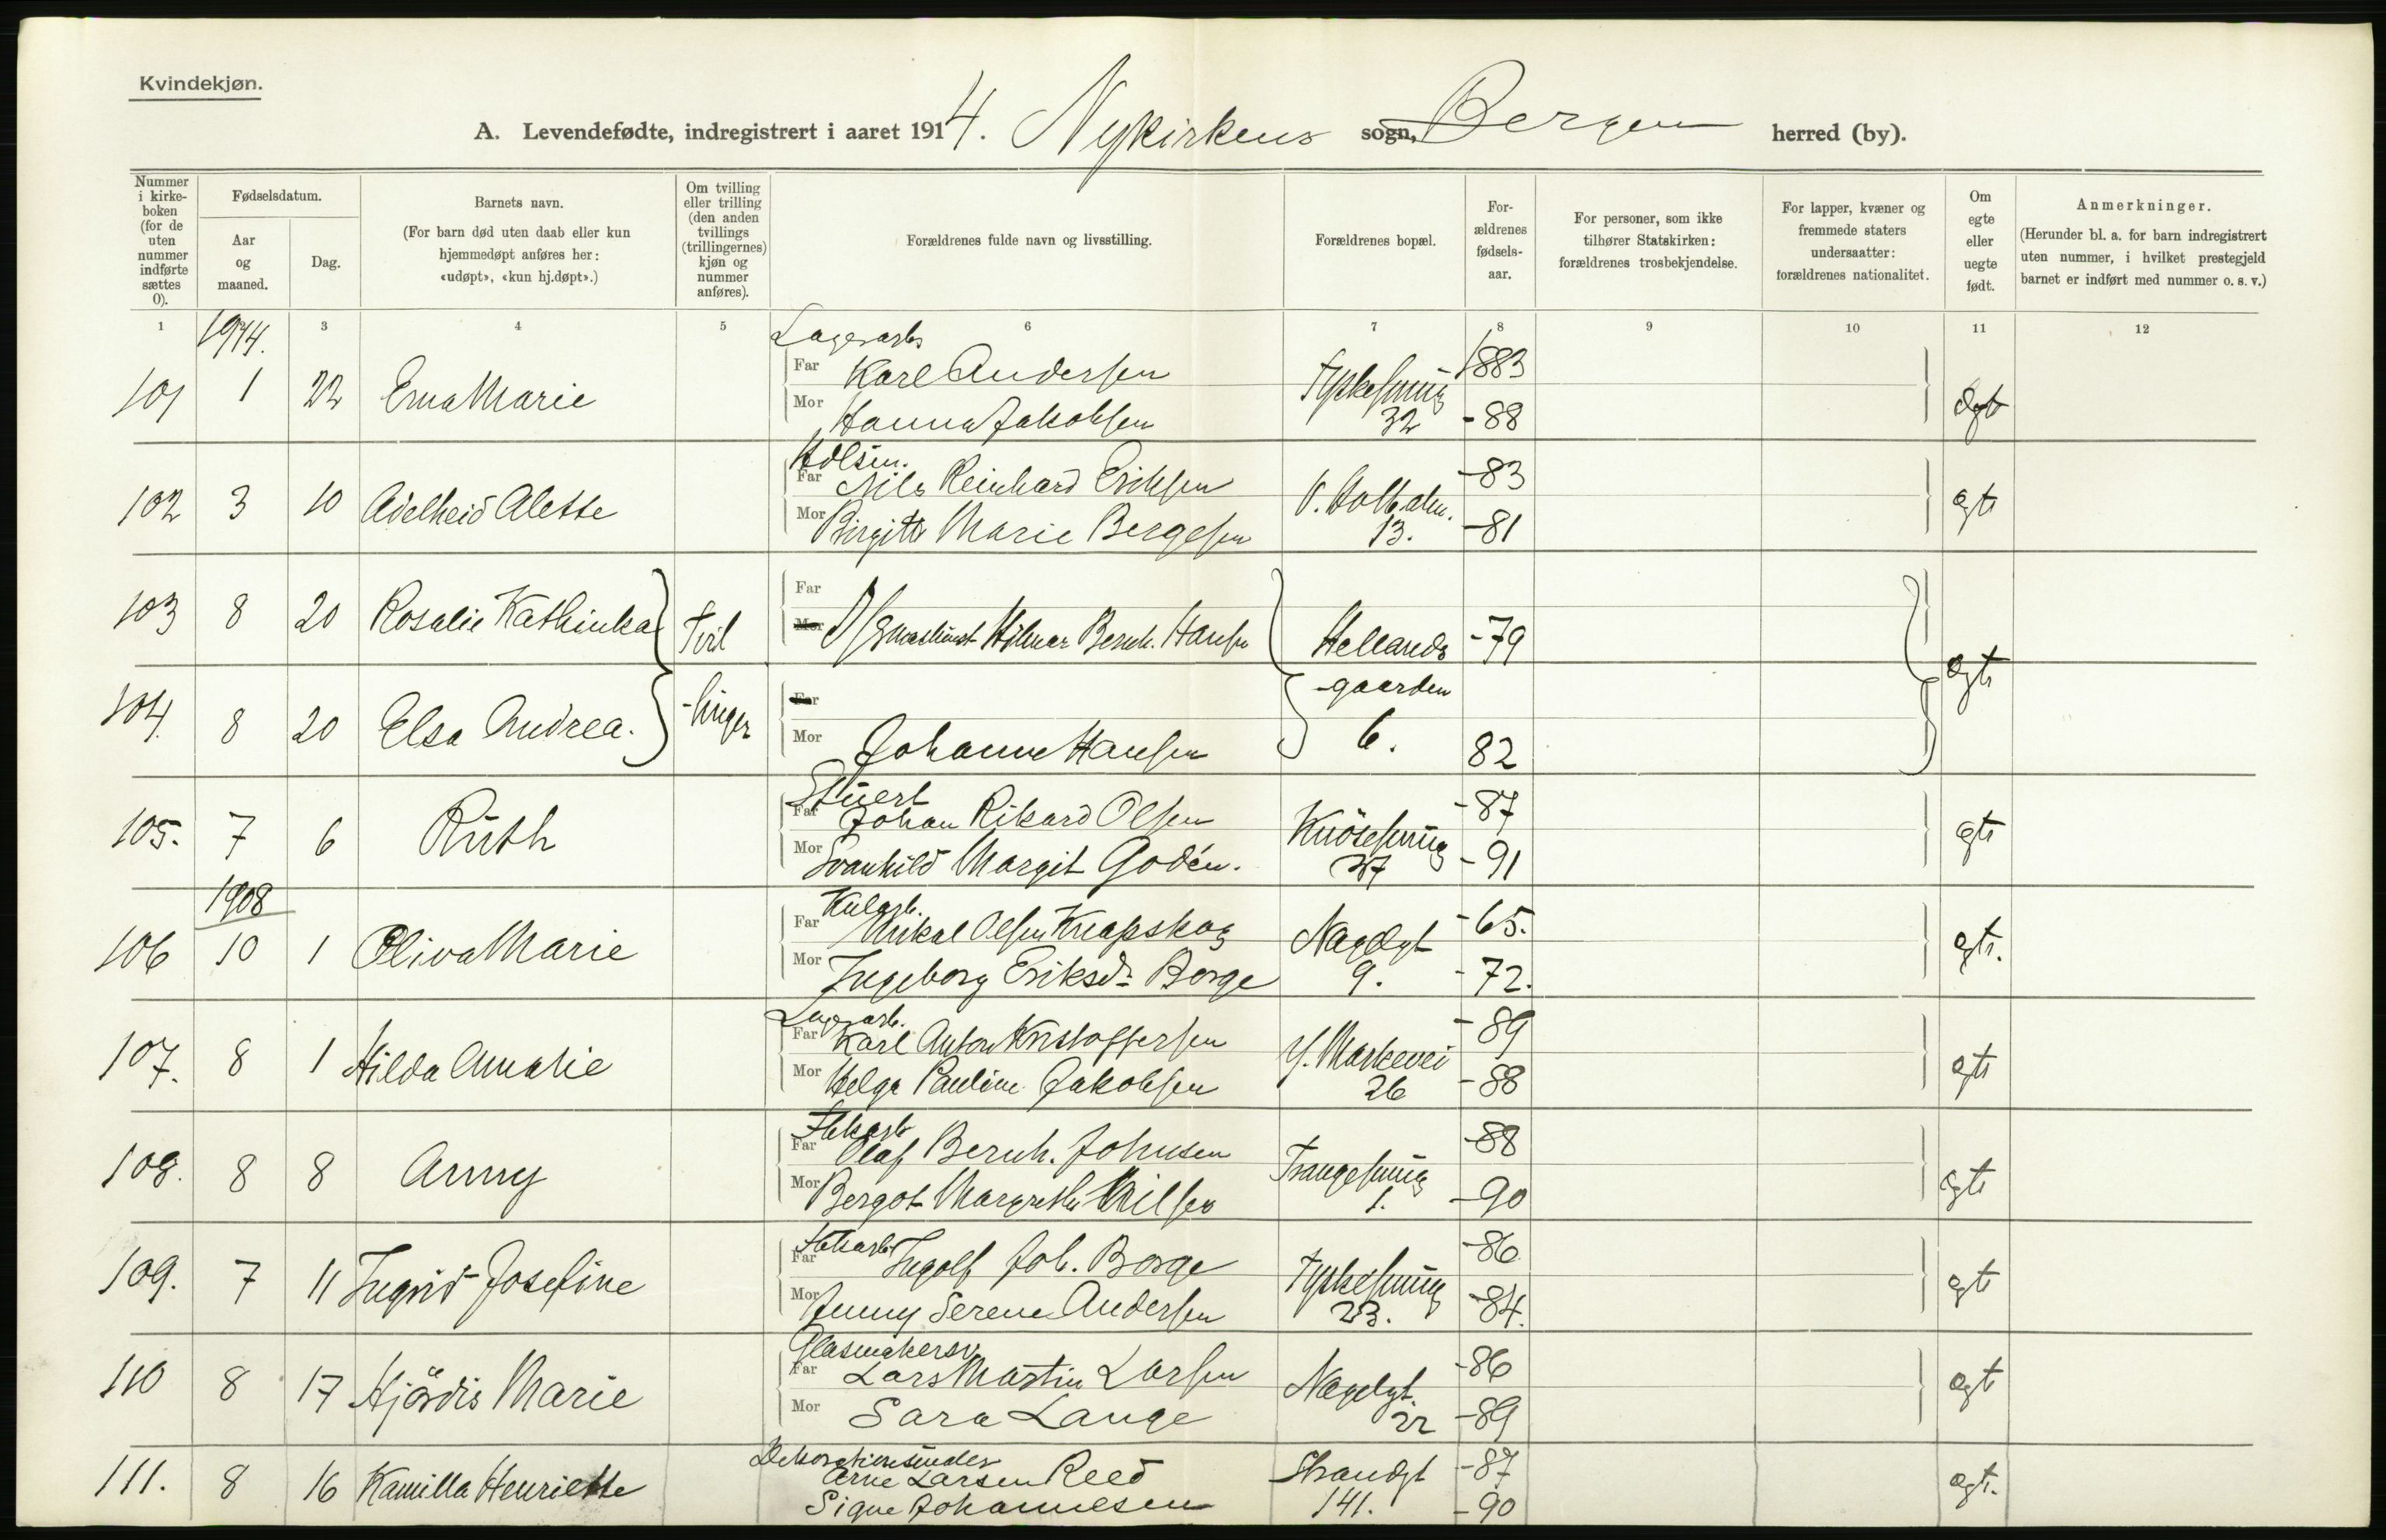 Kvindekjøn.
A. Levendefødte, indregistrert i aaret 1914. Nykirkens sogn, Bergen herred (by).
Nummer i kirkeboken (for de uten nummer indførte sættes 0).
Fødselsdatum.
Aar og maaned.
Dag.
Barnets navn.
(For barn død uten daab eller kun hjemmedøpt anføres her: «udøpt», «kun hj.døpt».)
Om tvilling eller trilling (den anden tvillings (trillingernes) kjøn og nummer anføres).
Forældrenes fulde navn og livsstilling.
Forældrenes bopæl.
Forældrenes fødselsaar.
For personer, som ikke tilhører Statskirken: forældrenes trosbekjendelse.
For lapper, kvæner og fremmede staters undersaatter: forældrenes nationalitet.
Om egte eller uegte født.
Anmerkninger.
(Herunder bl. a. for barn indregistrert uten nummer, i hvilket prestegjeld barnet er indført med nummer o. s. v.)
1 1914. 3 4 5 6 7 8 9 10 11 12
Lagerarb
101 1 22 Erna Marie Far Karl Andersen Tyskesmug 1883
Mor Hanna Jakobsen 32 -88 Egt
102 3 10 Adelheid Alette Far Nils Reinhard Eriksen -83
Mor Birgitte Marie Bergesen 13. -81 egte
103 8 20 Rosalie Kathinka Tvil Far
Mor Hilmar Bernh. Hansen Hellands -79
104. 8 20 Elsa Andrea. -linger Far -gaarden egte
Mor Johanne Hansen 6. 82
Stuert
105. 7 6 Ruth Far Johan Rikard Olsen Knøsesmug -87
Mor Svanhild Margit Godén. 27 -91 egte
1908
Kularb.
106 10 1 Oliva Marie Far Mikal Olsen Knapskog Nøgdgt -65.
Mor Ingeborg Eriksdr Borge 9. -72. egte.
Lagerarb.
107. 8 1 Hilda Amalie Far Karl Anton Kristoffersen Y. Markevei -89
Mor Helga Pauline Jakobsen 26 -88 egte
Fabarb
108. 8 8 Anny Far Olaf Bernh. Johnsen Trangesmug -88
Mor Bergot Margrethe Nilsen 1. -90 egte
109. 7 11 Ingrid Josefine Far Ingolf Joh. Borge Tyskesmug -86
Mor Jenny Serene Andersen 23. -84. egte
Glasmakersv
110 8 17 Hjördis Marie Far Lars Martin Larsen -86
Mor Sara Lange 22 -89 egte
111. 8 16 Kamilla Henriette Arne Larsen Reed Strandgt -87
Signe Johannesen 141. -90 egte.